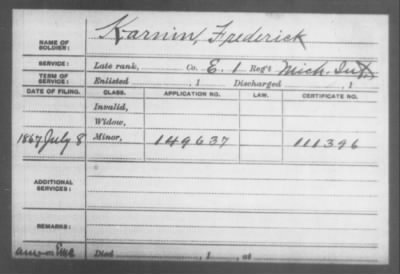 NAME OF SOLDIER: Karnin, Frederick
SERVICE: Late rank, Co. E. 1 Reg't Mich. Inf.
TERM OF SERVICE: Enlisted , 1 Discharged , 1
DATE OF FILING. CLASS. APPLICATION NO. LAW. CERTIFICATE NO.
Invalid,
Widow,
1867, July 8 Minor, 149637 111396
ADDITIONAL SERVICES:
REMARKS:
Died , 1 , at